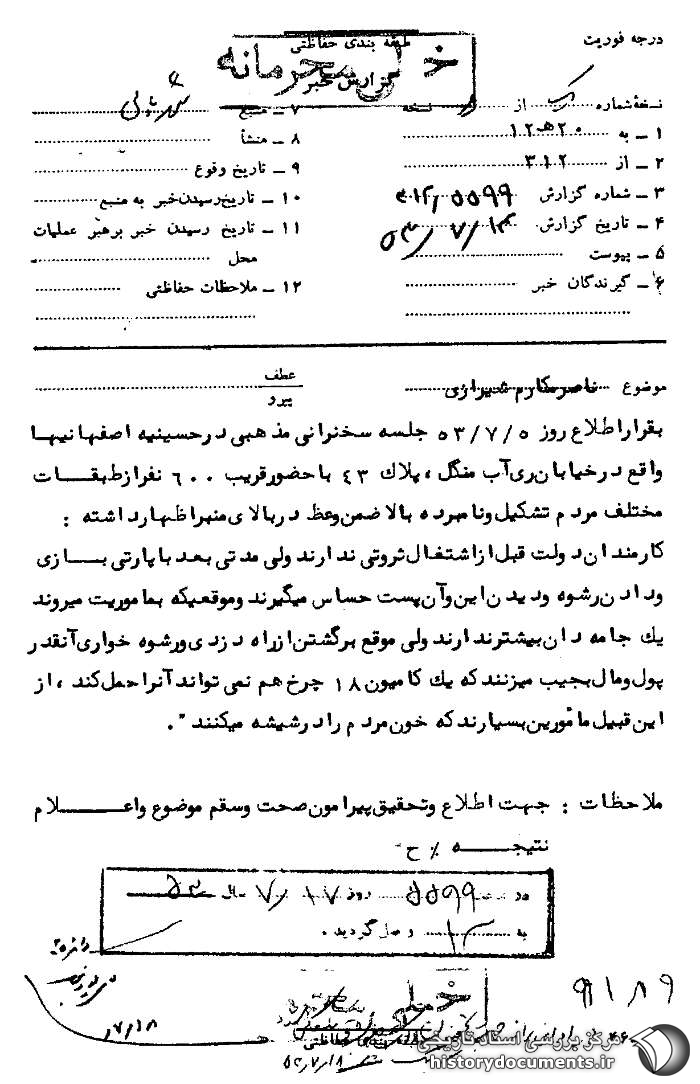 درجه فوریت
طبقه بندی حفاظتی
خیلی محرمانه
گزارش خبر
نسخهٔ شماره یک از نسخه
۱ ـ به ۲۰ هـ ۱۲
۲ ـ از ۳۱۲
۳ ـ شماره گزارش ۳۱۲/۵۵۹۹
۴ ـ تاریخ گزارش ۵۳/۷/۱۴
۵ ـ پیوست
۶ ـ گیرندگان خبر
۷ ـ منبع
۸ ـ منشأ
۹ ـ تاریخ وقوع
۱۰ ـ تاریخ رسیدن خبر به منبع
۱۱ ـ تاریخ رسیدن خبر برهبر عملیات
محل
۱۲ ـ ملاحظات حفاظتی
موضوع ناصر مکارم شیرازی
عطف
پیرو
بقرار اطلاع روز ۵۳/۷/۵ جلسه سخنرانی مذهبی در حسینیه اصفهانیها
واقع در خیابان ری آب منگل ، پلاک ۴۳ با حضور قریب ۶۰۰ نفر از طبقات
مختلف مردم تشکیل و نامبرده بالا ضمن وعظ در بالای منبر اظهار داشته :
کارمندان دولت قبل از اشتغال ثروتی ندارند ولی مدتی بعد با پارتی بازی
و دادن رشوه و دیدن این و آن پست حساس میگیرند و موقعیکه بماموریت میروند
یک جامه دان بیشتر ندارند ولی موقع برگشتن از راه دزدی و رشوه خواری آنقدر
پول و مال بجیب میزنند که یک کامیون ۱۸ چرخ هم نمی تواند آنرا حمل کند ، از
این قبیل مأمورین بسیارند که خون مردم را در شیشه میکنند " .
ملاحظات : جهت اطلاع و تحقیق پیرامون صحت و سقم موضوع و اعلام
نتیجه ٪ ح
در ۵۵۹۹ روز ۷/۱۷ سال ۵۳
به ۱۲ وصل گردید .
۷/۱۸
۹۱۸۹
خیلی محرمانه
طبقه بندی حفاظتی
مرکز بررسی اسناد تاریخی
historydocuments.ir